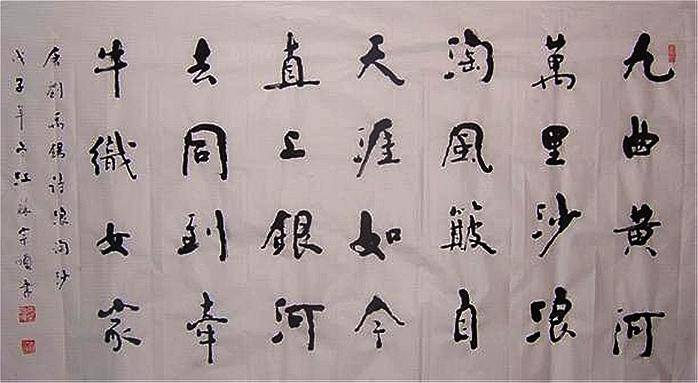 九曲黄河
萬里沙浪
淘風簸自
天涯如今
直上銀河
去同到牽
牛織女家
唐劉禹錫詩浪淘沙
戊子年